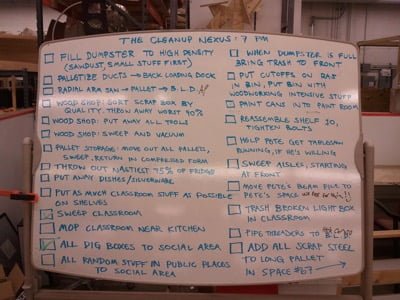 THE CLEANUP NEXUS: 7 PM
FILL DUMPSTER TO HIGH DENSITY
(SAWDUST, SMALL STUFF FIRST)
PALLETIZE DUCTS → BACK LOADING DOCK
RADIAL ARM SAW → PALLET → B.L.D.
WOOD SHOP: SORT SCRAP BOX BY
QUALITY. THROW AWAY WORST 90%
WOOD SHOP: PUT AWAY ALL TOOLS
WOOD SHOP: SWEEP AND VACUUM
PALLET STORAGE: MOVE OUT ALL PALLETS,
SWEEP, RETURN IN COMPRESSED FORM
THROW OUT NASTIEST 75% OF FRIDGE
PUT AWAY DISHES/SILVERWARE
PUT AS MUCH CLASSROOM STUFF AS POSSIBLE
ON SHELVES
SWEEP CLASSROOM
MOP CLASSROOM NEAR KITCHEN
ALL DIG BOXES TO SOCIAL AREA
ALL RANDOM STUFF IN PUBLIC PLACES
TO SOCIAL AREA
WHEN DUMPSTER IS FULL
BRING TRASH TO FRONT
PUT CUTOFFS ON RAS
IN BIN, PUT BIN WITH
WOODWORKING INTENSIVE STUFF
PAINT CANS INTO PAINT ROOM
REASSEMBLE SHELF 10,
TIGHTEN BOLTS
HELP PETE GET TABLESAW
RUNNING, IF HE'S WILLING
SWEEP AISLES, STARTING
AT FRONT
MOVE PETE'S BEAM PILE TO
PETE'S SPACE
TRASH BROKEN LIGHT BOX
IN CLASSROOM
PIPE THREADERS → B.L.D.
ADD ALL SCRAP STEEL
TO LONG PALLET
IN SPACE #67 →